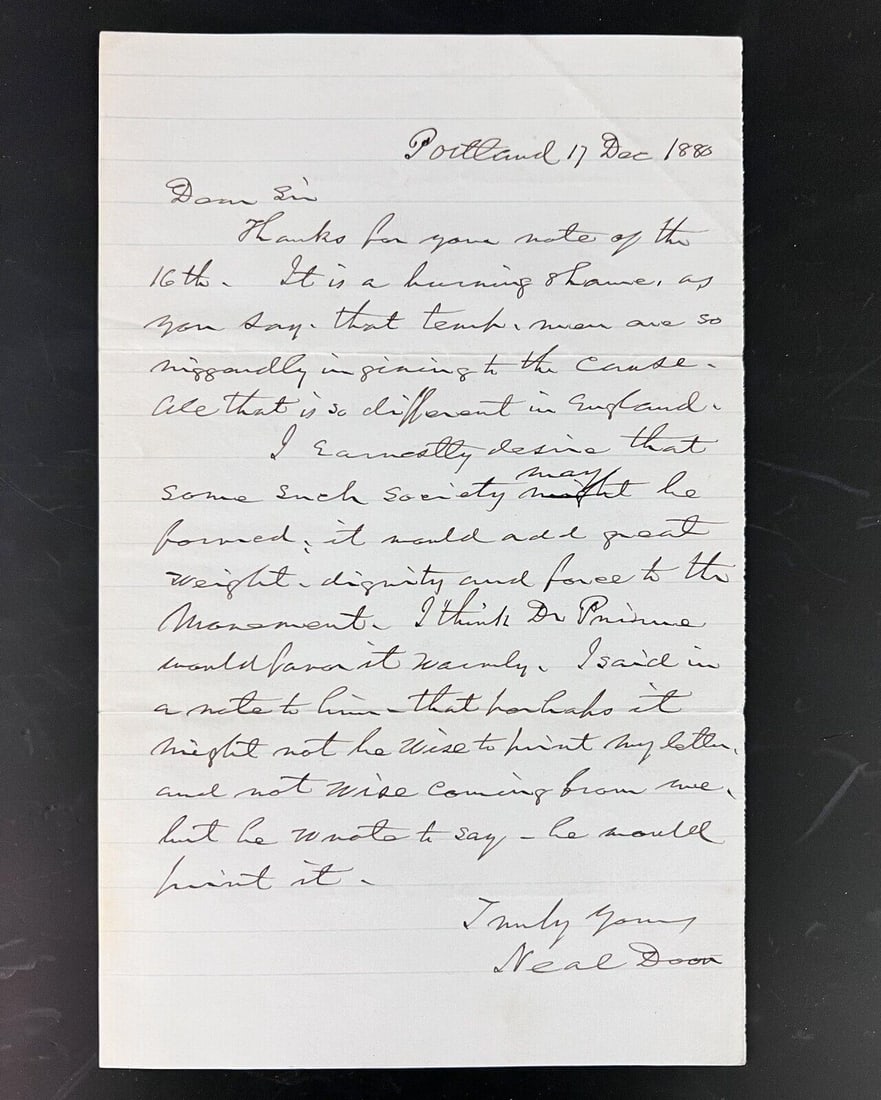 Portland 17 Dec 1880
Dear Sir
Thanks for your note of the
16th. It is a burning shame, as
you say. that temp. men are so
niggardly in giving to the cause.
All that is so different in England.
I earnestly desire that
some such society may might be
formed; it would add great
weight, dignity and force to the
Movement. I think Dr Prime
would favor it warmly. I said in
a note to him – that perhaps it
might not be wise to print my letter,
and not wise coming from me,
but he wrote to say – he would
print it.
Truly Yours
Neal Dow